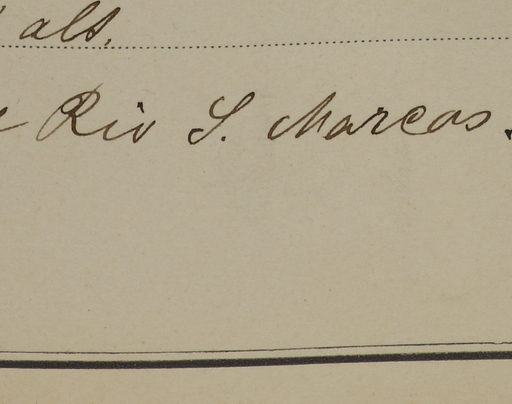 alt.
Rio S. Marcos.